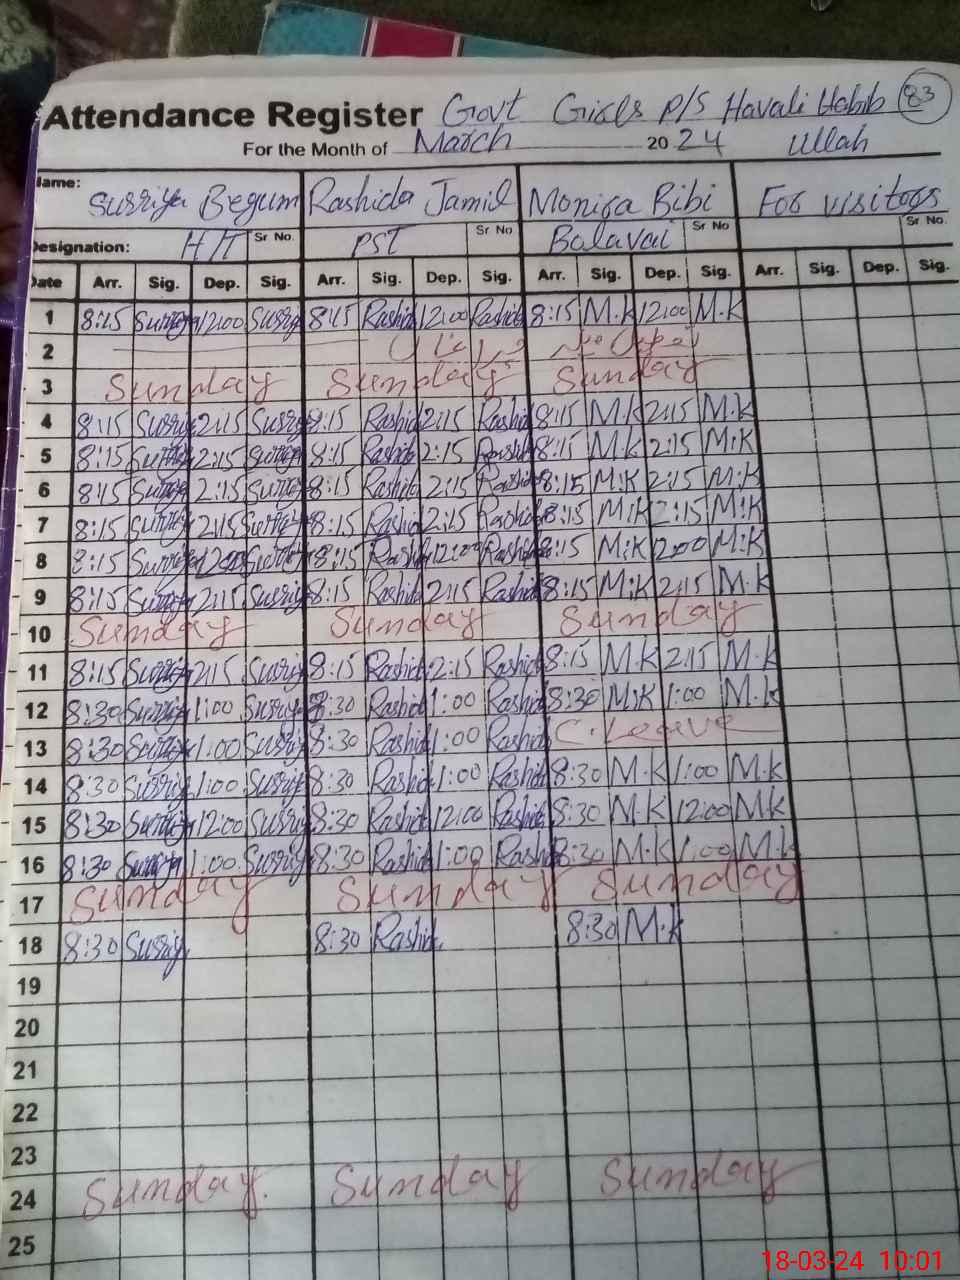 Attendance Register Govt Girls P/S Havali Habib 83
For the Month of March 2024 Ullah
Name: Surriya Begum Rashida Jamil Monira Bibi For visitors
Designation: H/T Sr No. PST Sr No. Balavai Sr No. Sr No.
Date Arr. Sig. Dep. Sig. Arr. Sig. Dep. Sig. Arr. Sig. Dep. Sig. Arr. Sig. Dep. Sig.
1 8:15 Surriya 12:00 Surriy 8:15 Rashid 12:00 Rashid 8:15 M.K 12:00 M.K
2
3 Sunday Sunday Sunday
4 8:15 Surriy 2:15 Surriy 8:15 Rashid 2:15 Rashid 8:15 M.K 2:15 M.K
5 8:15 Surriy 2:15 Surriy 8:15 Rashid 2:15 Rashid 8:15 M.K 2:15 M.K
6 8:15 Surriy 2:15 Surriy 8:15 Rashid 2:15 Rashid 8:15 M.K 2:15 M.K
7 8:15 Surriy 2:15 Surriy 8:15 Rashid 2:15 Rashid 8:15 M.K 2:15 M.K
8 8:15 Surriy 12:00 Surriy 8:15 Rashid 12:00 Rashid 8:15 M.K 12:00 M.K
9 8:15 Surriy 2:15 Surriy 8:15 Rashid 2:15 Rashid 8:15 M.K 2:15 M.K
10 Sunday Sunday Sunday
11 8:15 Surriy 2:15 Surriy 8:15 Rashid 2:15 Rashid 8:15 M.K 2:15 M.K
12 8:30 Surriy 1:00 Surriy 8:30 Rashid 1:00 Rashid 8:30 M.K 1:00 M.K
13 8:30 Surriy 1:00 Surriy 8:30 Rashid 1:00 Rashid C.Leave
14 8:30 Surriy 1:00 Surriy 8:30 Rashid 1:00 Rashid 8:30 M.K 1:00 M.K
15 8:30 Surriy 12:00 Surriy 8:30 Rashid 12:00 Rashid 8:30 M.K 12:00 M.K
16 8:30 Surriya 1:00 Surriy 8:30 Rashid 1:00 Rashid 8:30 M.K 1:00 M.K
17 Sunday Sunday Sunday
18 8:30 Surriy 8:30 Rashid 8:30 M.K
19
20
21
22
23
24 Sunday Sunday Sunday
25
18-03-24 10:01